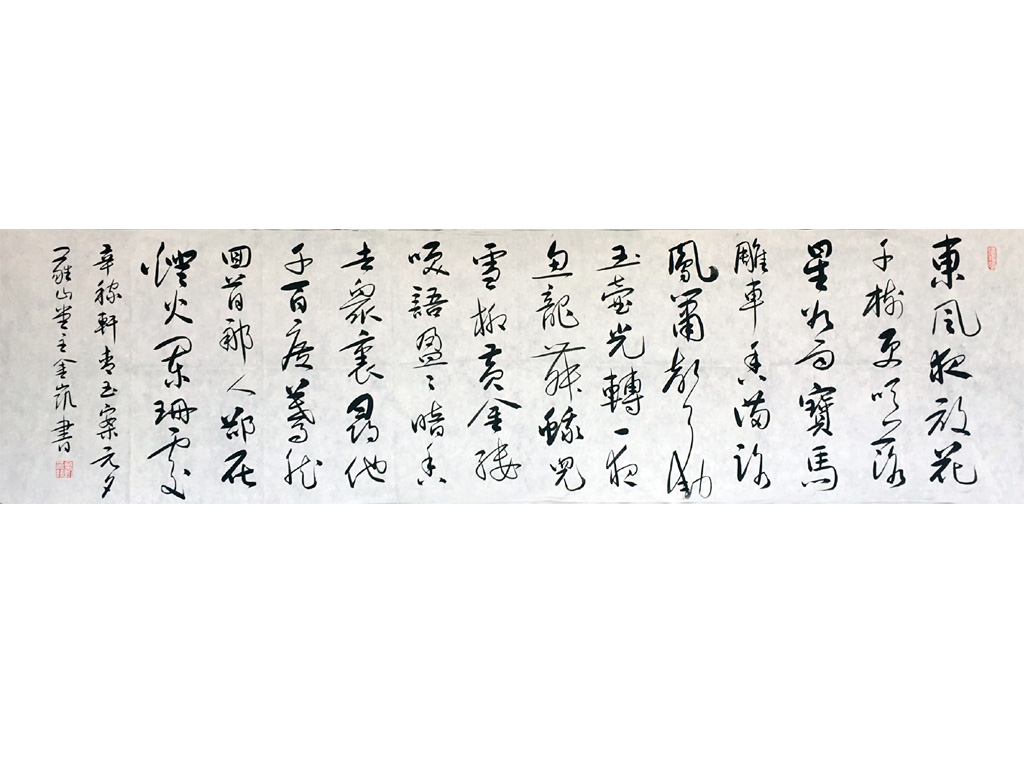 東風夜放花
千樹更吹落
星如雨寶馬
雕車香滿路
鳳簫聲動
玉壺光轉一夜
魚龍舞蛾兒
雪柳黃金縷
咲語盈〻暗香
去眾裏尋他
千百度驀然
回首那人卻在
燈火闌珊處
辛稼軒青玉案元夕
羅山堂主金凱書